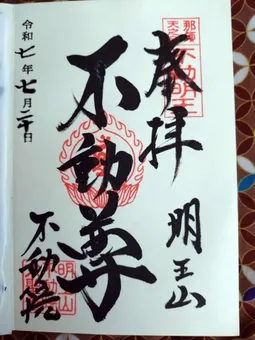 奉拝
不動明王
明王山
不動尊
令和七年七月二十日
不動院